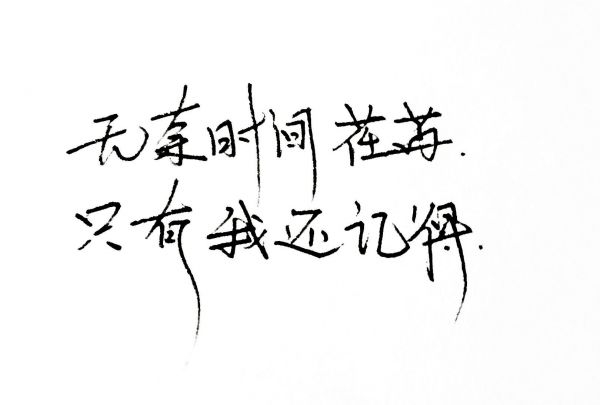 无奈时间荏苒.
只有我还记得.